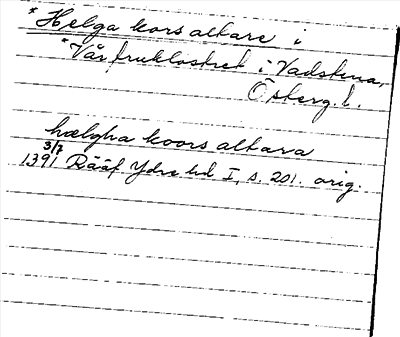 * Helga kors altare i
* Vår fruklostret i Vadstena,
Österg. l.
hælgha koors altara
3/7
1391 Rääf Ydre hd I, s. 201. orig.